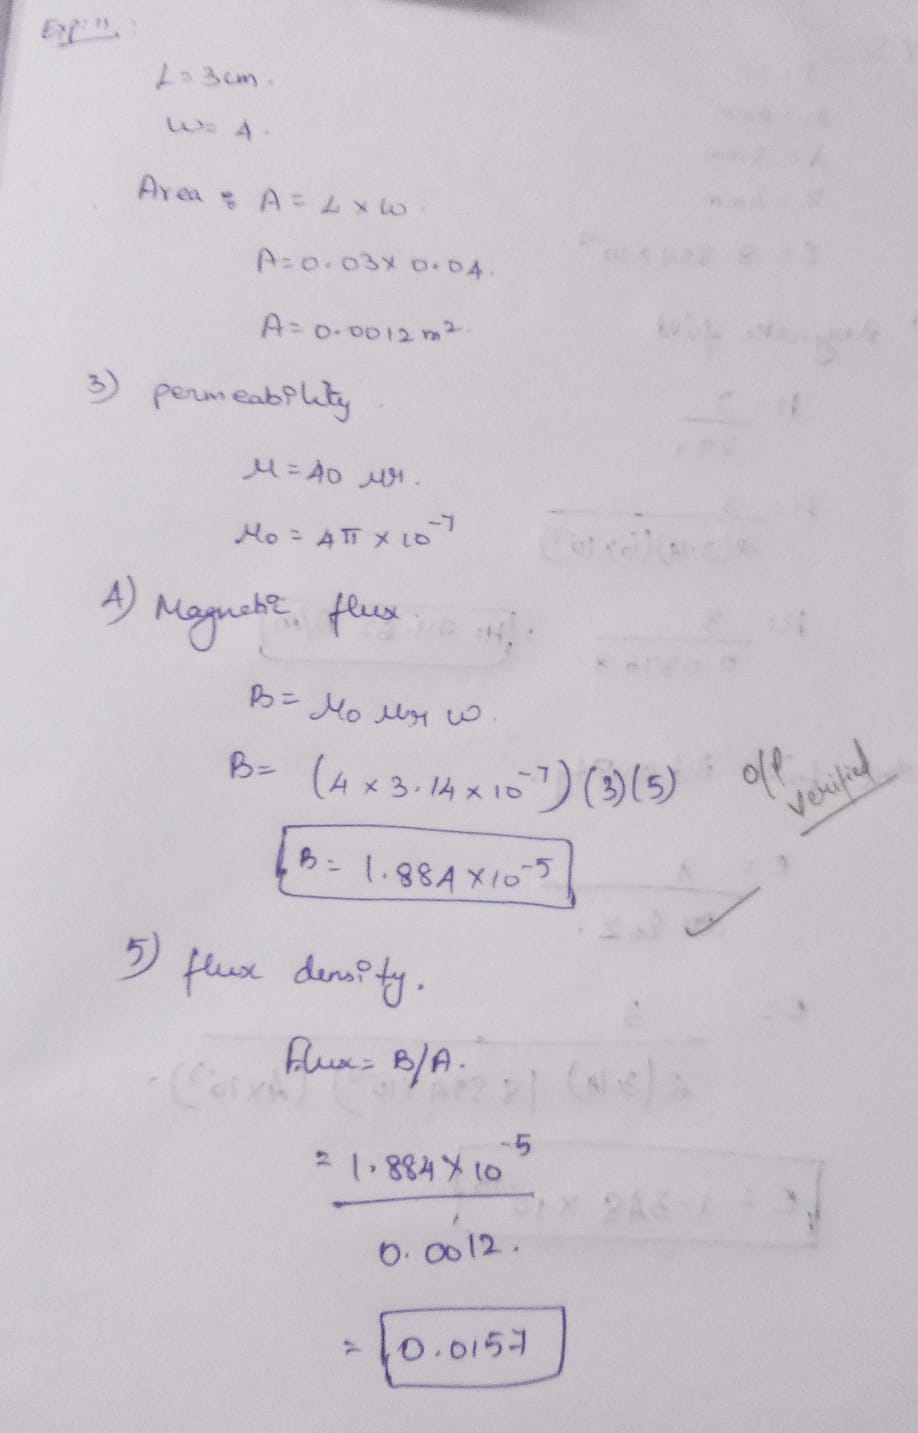 Exp: 11
L = 3cm.
W = 4.
Area : A = L x W.
A = 0.03 x 0.04.
A = 0.0012 m².
3) permeability
μ = μ0 μr.
μ0 = 4π x 10⁻⁷
4) Magnetic flux
B = μ0 μr w.
B = (4 x 3.14 x 10⁻⁷) (3) (5)
o/p verified
B = 1.884 x 10⁻⁵
5) flux density.
Flux = B/A.
= 1.884 x 10⁻⁵
0.0012.
= 0.0157